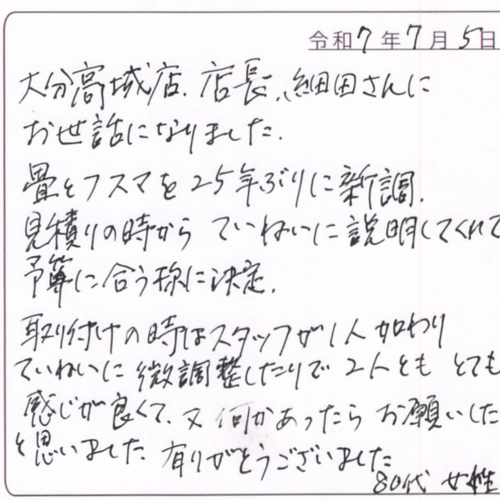 令和7年7月5日
大分高城店、店長、細田さんに
お世話になりました。
畳とフスマを25年ぶりに新調、
見積りの時から ていねいに説明してくれて
予算に合う様に決定、
取り付けの時はスタッフが1人加わり
ていねいに微調整したりで2人とも とても
感じが良くて、又何かあったら お願いした
と思いました。有りがとうございました
80代 女性